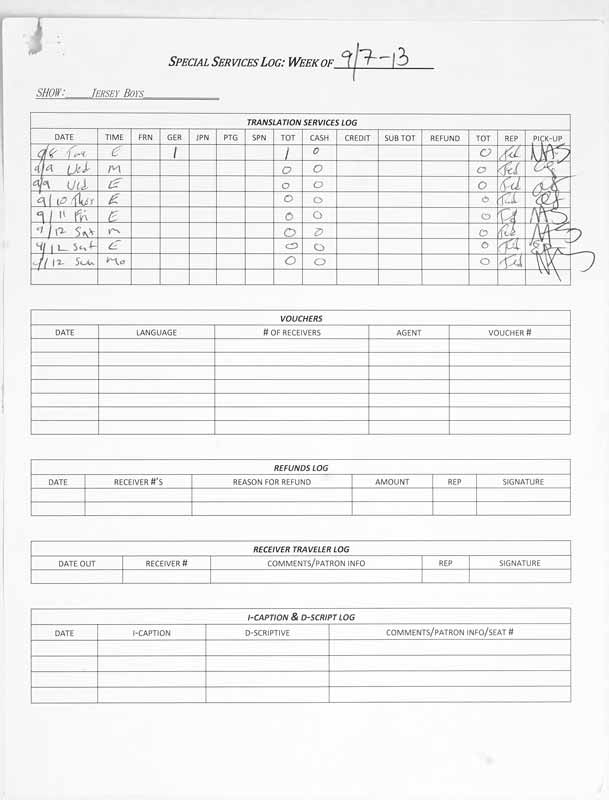 SPECIAL SERVICES LOG: WEEK OF 9/7-13
SHOW: JERSEY BOYS
TRANSLATION SERVICES LOG
DATE TIME FRN GER JPN PTG SPN TOT CASH CREDIT SUB TOT REFUND TOT REP PICK-UP
9/8 Tue E 1 1 0 0 Ted
9/9 Wed M 0 0 0 Ted
9/9 Wed E 0 0 0 Ted
9/10 Thur E 0 0 0 Ted
9/11 Fri E 0 0 0 Ted
9/12 Sat M 0 0 0 Ted
9/12 Sat E 0 0 0 Ted
9/12 Sun 0 0 0 Ted
VOUCHERS
DATE LANGUAGE # OF RECEIVERS AGENT VOUCHER #
REFUNDS LOG
DATE RECEIVER #'S REASON FOR REFUND AMOUNT REP SIGNATURE
RECEIVER TRAVELER LOG
DATE OUT RECEIVER # COMMENTS/PATRON INFO REP SIGNATURE
I-CAPTION & D-SCRIPT LOG
DATE I-CAPTION D-SCRIPTIVE COMMENTS/PATRON INFO/SEAT #